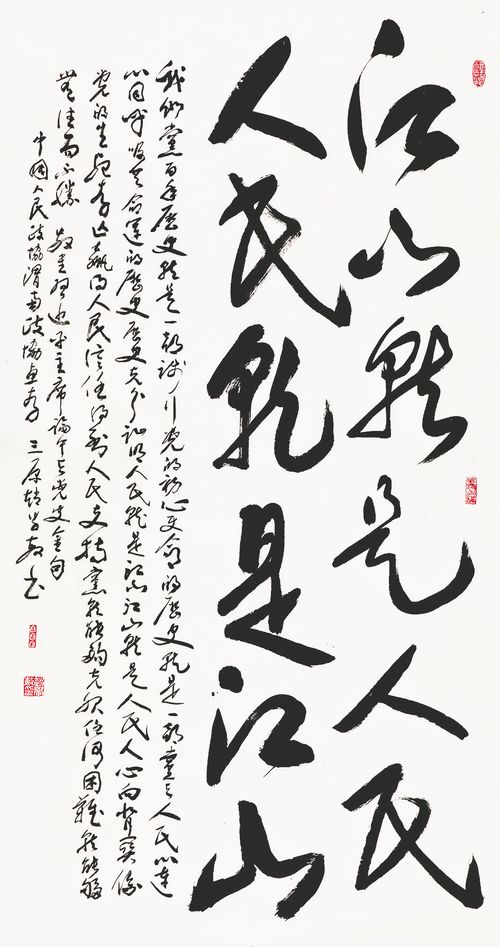 江山就是人民
人民就是江山
我们党百年历史就是一部践行党的初心使命的历史就是一部党与人民心连
心同呼吸共命运的历史历史充分证明人民就是江山江山就是人民人心向背关系
党的生死存亡赢得人民信任得到人民支持党就能够克服任何困难就能够
无往而不胜 敬书习近平主席论中共党史金句
中国人民政协渭南政协委员 三原 书